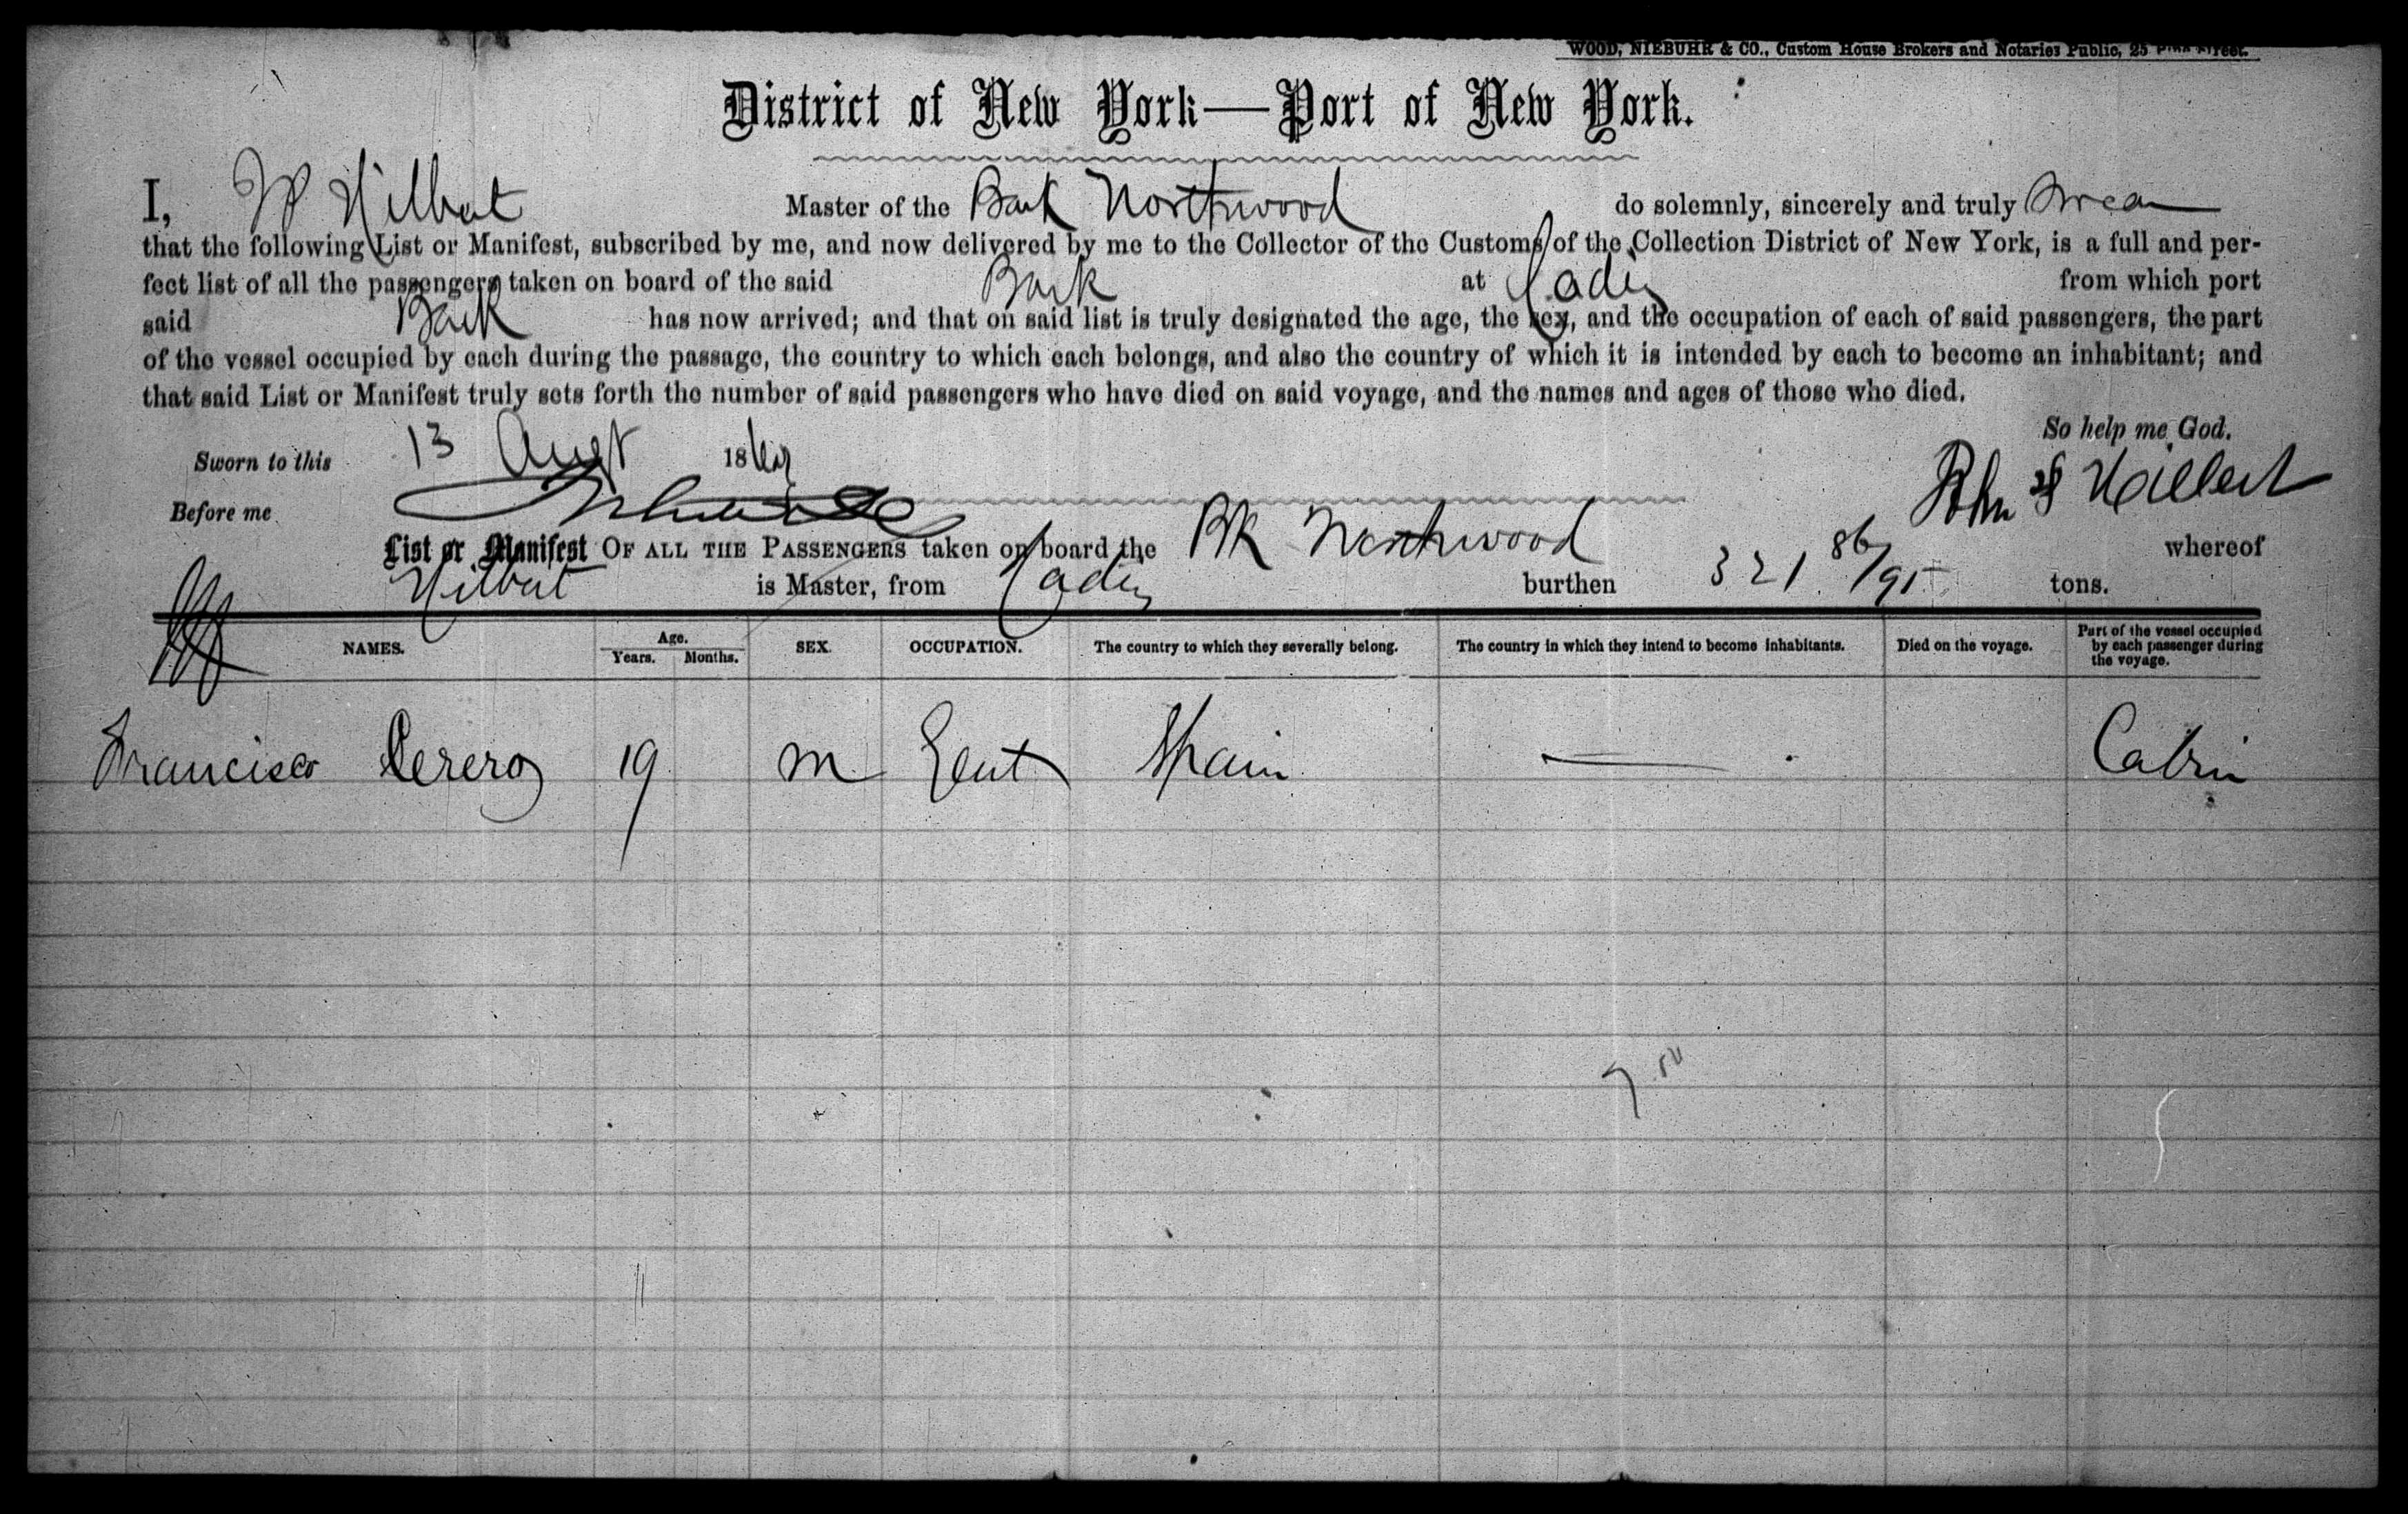 WOOD, NIEBUHR & CO., Custom House Brokers and Notaries Public, 25 Street.
District of New York—Port of New York.
I, Hilbert Master of the Bark Northwood do solemnly, sincerely and truly Swear
that the following List or Manifest, subscribed by me, and now delivered by me to the Collector of the Customs of the Collection District of New York, is a full and per-
fect list of all the passengers taken on board of the said Bark at Cadiz from which port
said Bark has now arrived; and that on said list is truly designated the age, the sex, and the occupation of each of said passengers, the part
of the vessel occupied by each during the passage, the country to which each belongs, and also the country of which it is intended by each to become an inhabitant; and
that said List or Manifest truly sets forth the number of said passengers who have died on said voyage, and the names and ages of those who died.
So help me God.
Sworn to this 13 Augt 18
Before me
List or Manifest OF ALL THE PASSENGERS taken on board the Bk Northwood whereof
Hilbert is Master, from Cadiz burthen 321 86/95 tons.
NAMES. Age. Years. Months. SEX. OCCUPATION. The country to which they severally belong. The country in which they intend to become inhabitants. Died on the voyage. Part of the vessel occupied by each passenger during the voyage.
Francisco 19 m Gent Spain — Cabin